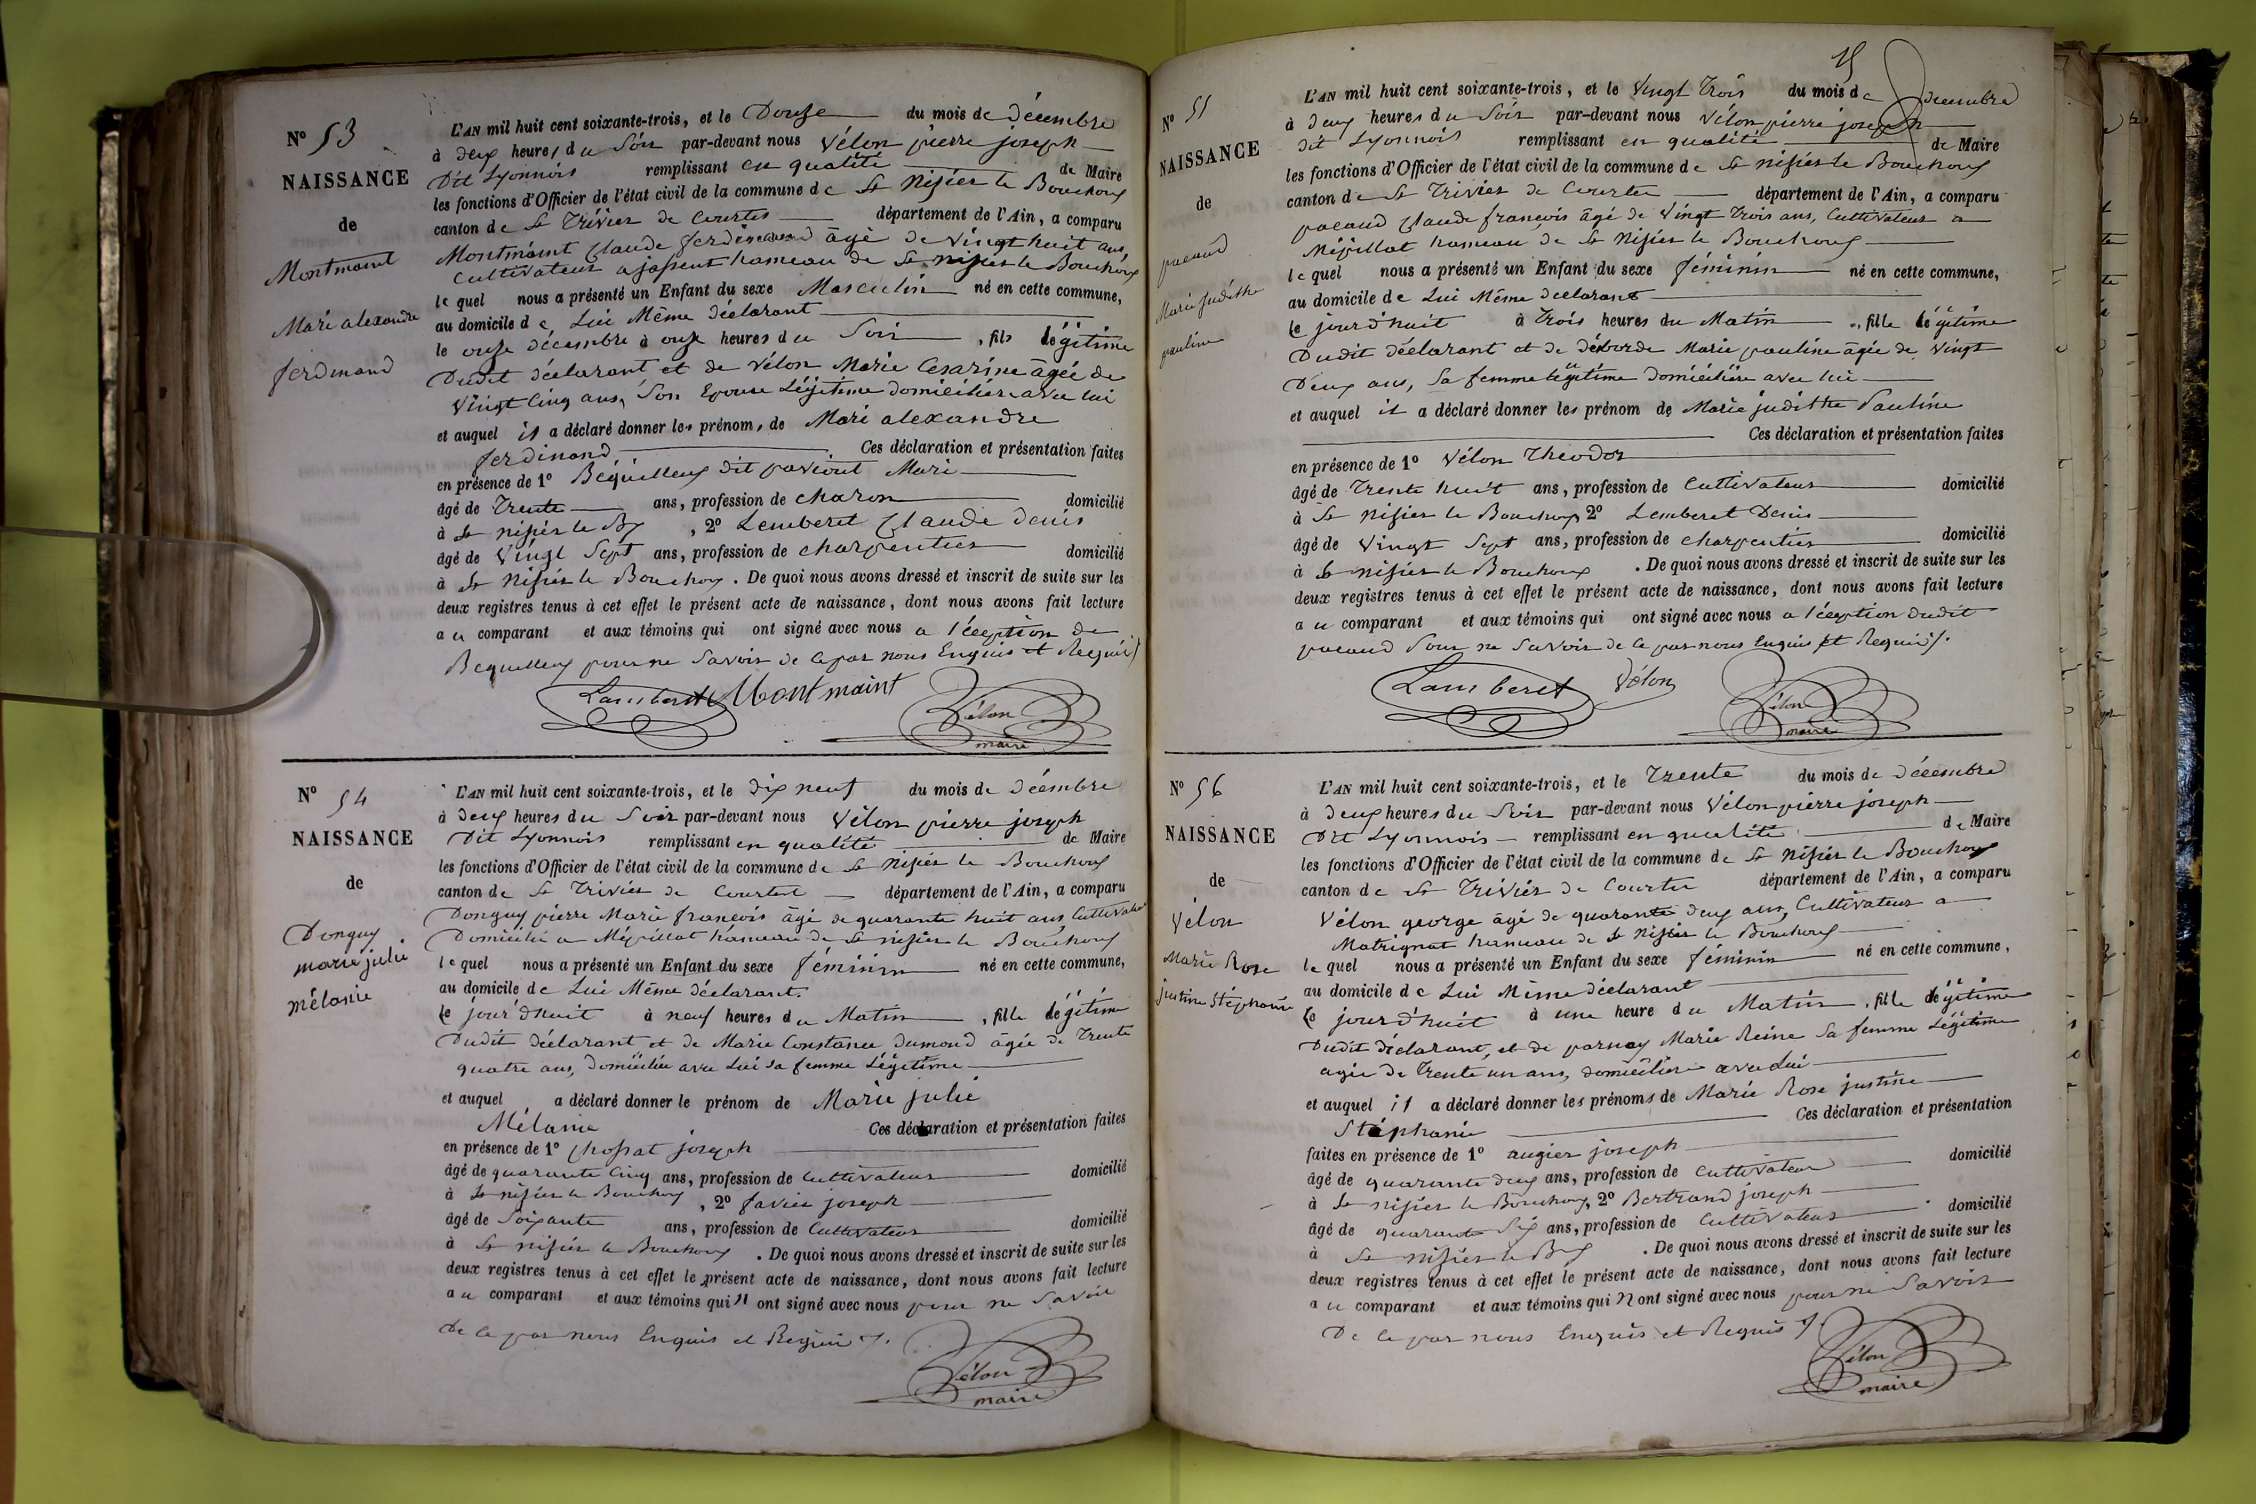 N° 53
NAISSANCE
de
Montmaint
Marie alexandre
ferdinand
L'AN mil huit cent soixante-trois, et le Douze du mois de décembre
à deux heures du Soir par-devant nous Vélon pierre joseph
Dit Lyonnois remplissant en qualité de Maire
les fonctions d'Officier de l'état civil de la commune de St Nizier le Bouchoux
canton de St Trivier de Courtes département de l'Ain, a comparu
Montmaint Claude ferdinand âgé de vingt huit ans,
Cultivateur a hameau de St nizier le Bouchoux
lequel nous a présenté un Enfant du sexe Masculin né en cette commune,
au domicile de Lui Même déclarant
le onze décembre à onze heures du Soir, fils légitime
Dudit déclarant et de Vélon Marie Césarine âgée de
Vingt Cinq ans, Son Epouse Légitime domiciliée avec lui
et auquel il a déclaré donner les prénoms de Marie alexandre
ferdinand Ces déclaration et présentation faites
en présence de 1° Béquilleux dit Marie
âgé de Trente ans, profession de charon domicilié
à St nizier le Bx, 2° Lemberet Claude denis
âgé de Vingt Sept ans, profession de charpentier domicilié
à St Nizier le Bouchoux. De quoi nous avons dressé et inscrit de suite sur les
deux registres tenus à cet effet le présent acte de naissance, dont nous avons fait lecture
au comparant et aux témoins qui ont signé avec nous a l'éception de
Bequilleux pour ne Savoir de ce par nous Enquis et Requis
Lamberet Montmaint Vélon
maire
N° 54
NAISSANCE
de
Donguy
marie julie
mélanie
L'AN mil huit cent soixante-trois, et le dix neuf du mois de décembre
à deux heures du Soir par-devant nous Vélon pierre joseph
Dit Lyonnois remplissant en qualité de Maire
les fonctions d'Officier de l'état civil de la commune de St Nizier le Bouchoux
canton de St Trivier de Courtes département de l'Ain, a comparu
Donguy pierre Marie françois âgé de quarante huit ans Cultivateur
Domicilié a Mépillat hameau de St nizier le Bouchoux
lequel nous a présenté un Enfant du sexe féminin né en cette commune,
au domicile de Lui Même déclarant.
le jour d'huit à neuf heures du Matin, fille légitime
Dudit déclarant et de Marie Constance dumond âgée de Trente
quatre ans, domiciliée avec Lui sa femme Légitime
et auquel a déclaré donner le prénom de Marie julie
Mélanie Ces déclaration et présentation faites
en présence de 1° Chossat joseph
âgé de quarante Cinq ans, profession de Cultivateur domicilié
à St nizier le Bouchoux, 2° favier joseph
âgé de Soixante ans, profession de Cultivateur domicilié
à St nizier le Bouchoux. De quoi nous avons dressé et inscrit de suite sur les
deux registres tenus à cet effet le présent acte de naissance, dont nous avons fait lecture
au comparant et aux témoins qui n ont signé avec nous pour ne Savoir
De ce par nous Enquis et Requis.
Vélon
maire
15
N° 55
NAISSANCE
de
pacaud
Marie Judithe
pauline
L'AN mil huit cent soixante-trois, et le Vingt Trois du mois de decembre
à deux heures du Soir par-devant nous Vélon pierre joseph
dit Lyonnois remplissant en qualité de Maire
les fonctions d'Officier de l'état civil de la commune de St nizier le Bouchoux
canton de St Trivier de Courtes département de l'Ain, a comparu
pacaud Claude françois âgé de Vingt Trois ans, Cultivateur a
Mépillat hameau de St Nizier le Bouchoux
lequel nous a présenté un Enfant du sexe féminin né en cette commune,
au domicile de Lui Même déclarant
le jour d'huit à Trois heures du Matin, fille légitime
Dudit déclarant et de déborde Marie pauline âgée de Vingt
Deux ans, Sa femme légitime domiciliée avec lui
et auquel il a déclaré donner les prénom de Marie judithe Pauline
Ces déclaration et présentation faites
en présence de 1° Vélon Theodor
âgé de Trente huit ans, profession de Cultivateur domicilié
à St Nizier le Bouchoux 2° Lemberet Denis
âgé de Vingt Sept ans, profession de charpentier domicilié
à St nizier le Bouchoux. De quoi nous avons dressé et inscrit de suite sur les
deux registres tenus à cet effet le présent acte de naissance, dont nous avons fait lecture
au comparant et aux témoins qui ont signé avec nous a l'éception dudit
pacaud Pour ne Savoir de ce par nous Enquis et Requis.
Lamberet Vélon Vélon
maire
N° 56
NAISSANCE
de
Vélon
Marie Rose
justine Stéphanie
L'AN mil huit cent soixante-trois, et le Trente du mois de décembre
à deux heures du Soir par-devant nous Vélon pierre joseph
Dit Lyonnois remplissant en qualité de Maire
les fonctions d'Officier de l'état civil de la commune de St Nizier le Bouchoux
canton de St Trivier de Courtes département de l'Ain, a comparu
Vélon george âgé de quarante deux ans, Cultivateur a
Matrignat hameau de St Nizier le Bouchoux
lequel nous a présenté un Enfant du sexe féminin né en cette commune,
au domicile de Lui Même déclarant
le jour d'huit à une heure du Matin, fille légitime
Dudit déclarant, et de parnay Marie Reine Sa femme Légitime
agée de Trente un ans, domiciliée avec Lui
et auquel il a déclaré donner les prénoms de Marie Rose justine
Stéphanie Ces déclaration et présentation
faites en présence de 1° augier joseph
âgé de quarante deux ans, profession de Cultivateur domicilié
à St nizier le Bouchoux, 2° Bertrand joseph
âgé de quarante Six ans, profession de Cultivateur domicilié
à St nizier le Bx. De quoi nous avons dressé et inscrit de suite sur les
deux registres tenus à cet effet le présent acte de naissance, dont nous avons fait lecture
au comparant et aux témoins qui n ont signé avec nous pour ne Savoir
De ce par nous Enquis et Requis
Vélon
maire